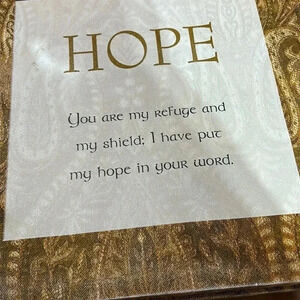 HOPE
You are my refuge and
my shield; I have put
my hope in your word.